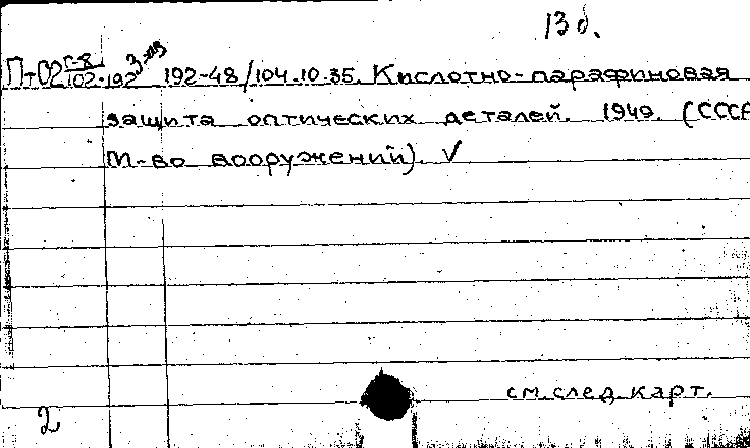 13 д.
ПтО2 Г-8/102.192 3-ий 192-48/104.10-35. Кислотно-парафиновая
защита оптических деталей. 1949. (СССР
М-во вооружений). ✓
см.след.карт.
2